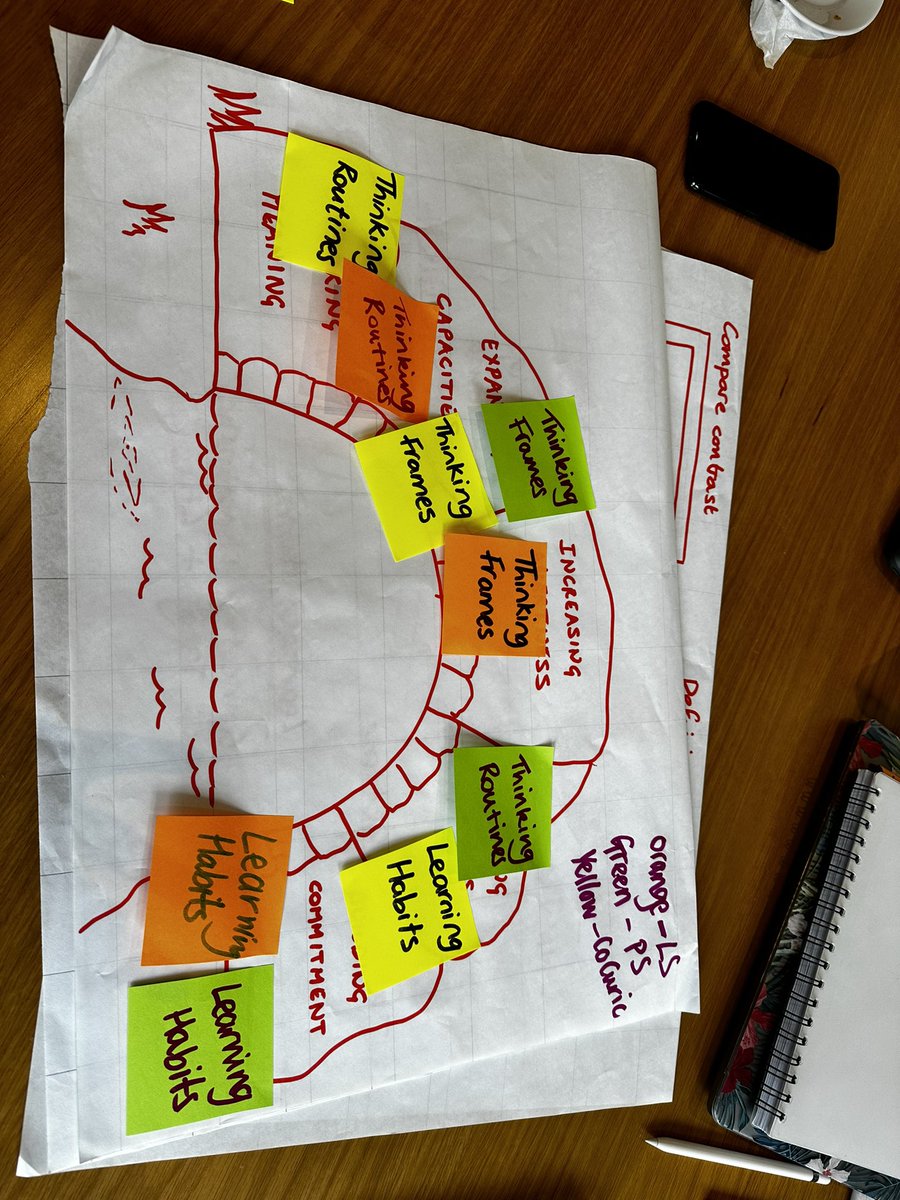 Thinking
Routines
MEANING
KING
Thinking
Routines
CAPACITIE
EXPAN
Thinking
Frames
Thinking
Frames
INCREASING
NESS
Thinking
Frames
Thinking
Routines
NG
Learning
Habits
ING
COMMITMENT
Learning
Habits
Learning
Habits
Orange-LS
Green - PS
Yellow-CoCuric
Compare contrast
Defi